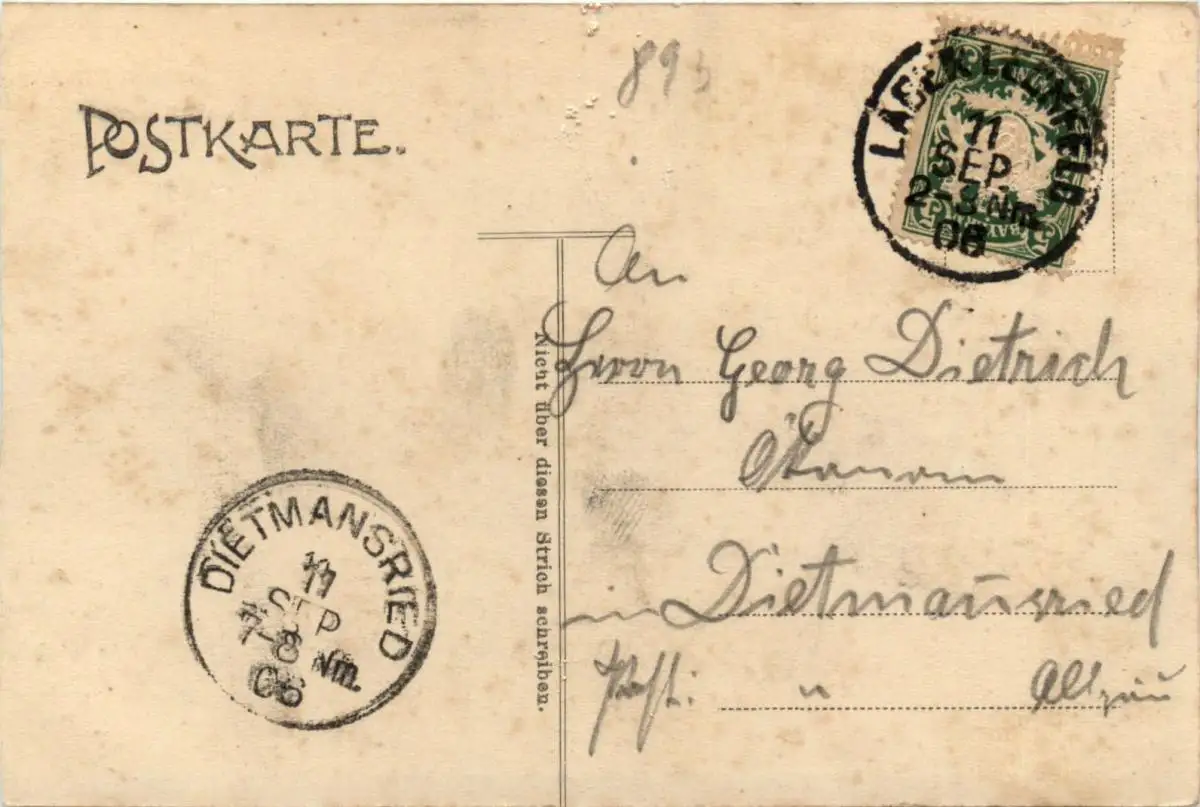 POSTKARTE.
89
LAGER LECHFELD
11
SEP.
2-3 Nm.
06
BAYERN
An
Herrn Georg Dietrich
Ökonom
in Dietmansried
Post: " Allgäu
Nicht über diesen Strich schreiben.
DIETMANSRIED
11
SEP
7-8 Nm.
06